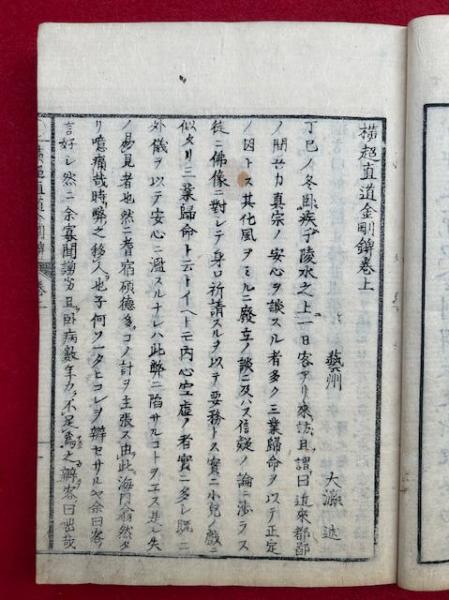 横超直道金剛錍巻上
藝州 大瀛 述
丁巳ノ冬臥疾于陵水之上一日客アリ來訪且謂曰近來都鄙
ノ間甘カ真宗ノ安心ヲ談スル者多ク三業歸命ヲ以テ正定
ノ因トス其化風ヲミルニ廢立ノ談ニ及ハス信疑ノ論ニ渉ラス
徒ニ佛像ニ對シテ身口祈請スルヲ以テ要務トス實ニ小兒ノ戯ニ
似タリ三業歸命ト云トイヘトモ内心空虚ノ者實ニ多シ既ニ
外儀ヲ以テ安心ニ濫スルナレハ此弊ニ陷サルコトヲエス悲シ失
ノ易見者也然ニ耆宿碩德多コノ計ヲ主張ス由此海内翕然タ
リ噫痛哉時弊之移人也子何ソ一タヒコレヲ辨セサルヤ余曰客
言好シ然ニ余寡聞謭劣且臥病數年力不足爲之辯客曰出哉
横超直道金剛錍 巻上